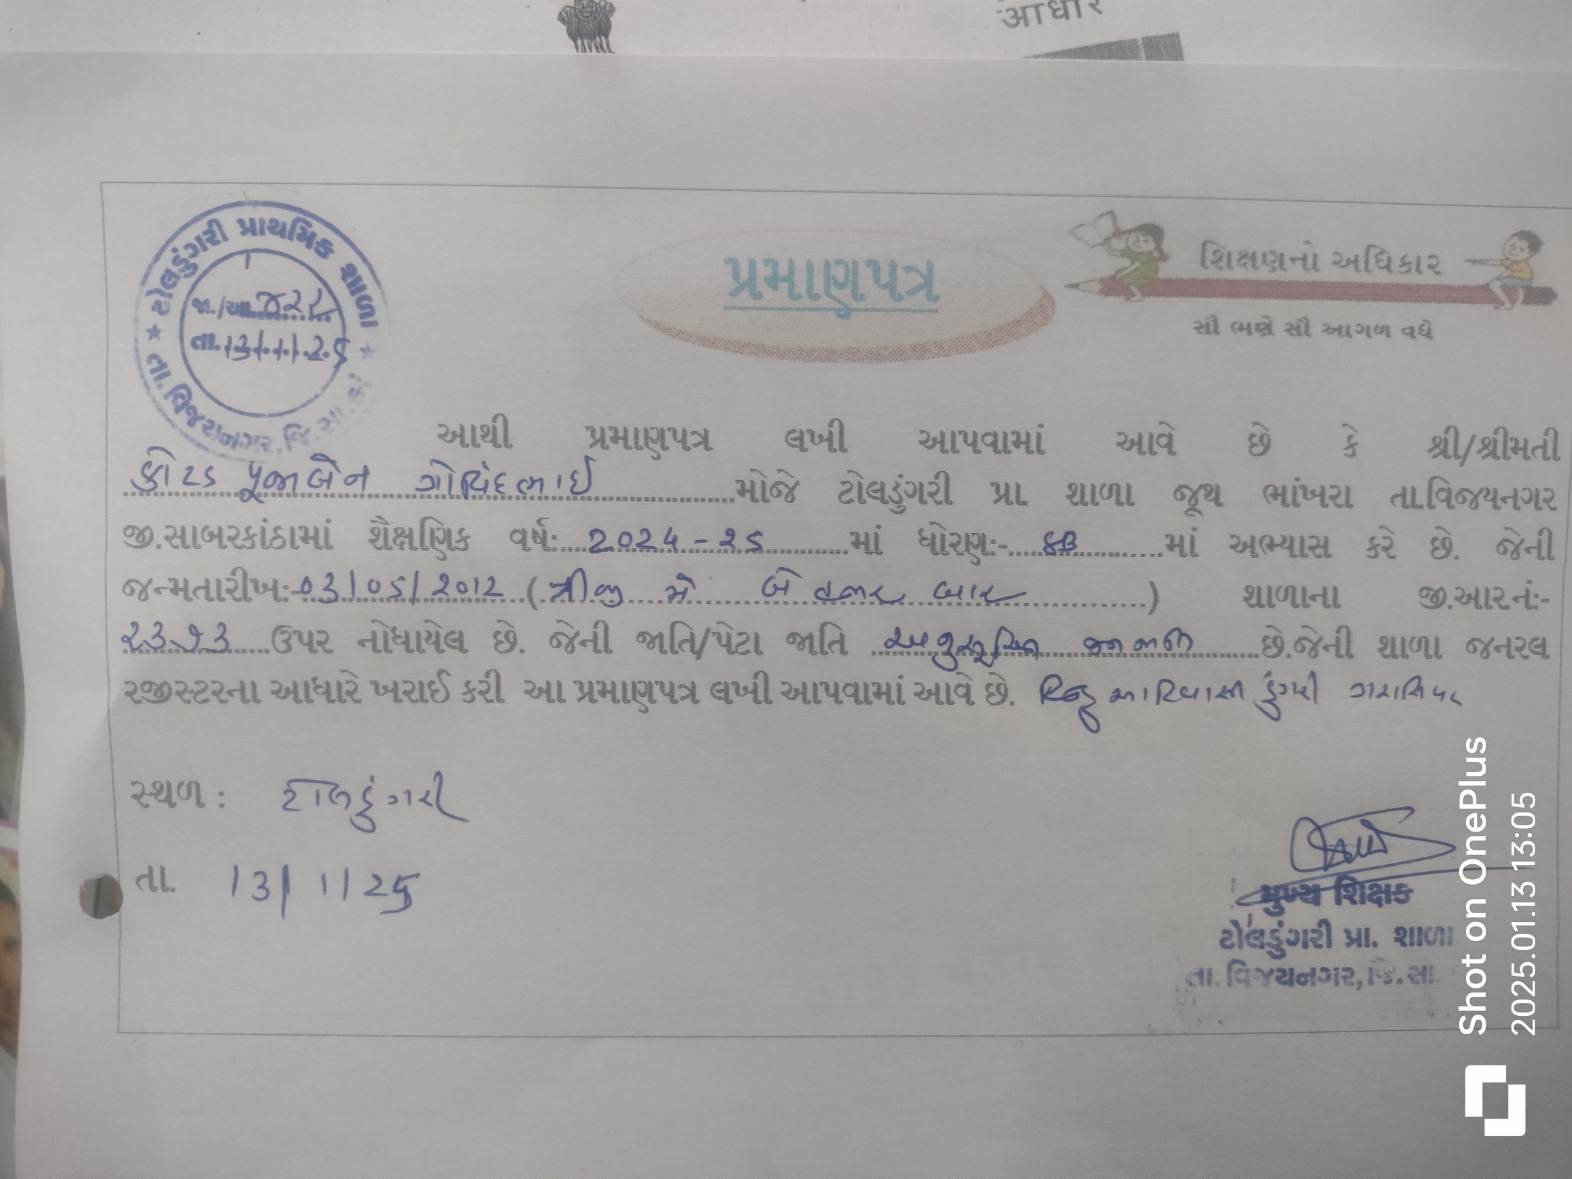 आधार
ટોલડુંગરી પ્રાથમિક શાળા
જા./આ.
તા. 13/1/25
તા. વિજયનગર, જિ. સા.કાં
પ્રમાણપત્ર
શિક્ષણનો અધિકાર
સૌ ભણે સૌ આગળ વધે
આથી પ્રમાણપત્ર લખી આપવામાં આવે છે કે શ્રી/શ્રીમતી
કોટડ પૂજાબેન ગોવિંદભાઈ મોજે ટોલડુંગરી પ્રા. શાળા જૂથ ભાંખરા તા.વિજયનગર
જી.સાબરકાંઠામાં શૈક્ષણિક વર્ષ: 2024-25 માં ધોરણ:- માં અભ્યાસ કરે છે. જેની
જન્મતારીખ:- 03/05/2012 (ત્રીજી મે બે હજાર બાર) શાળાના જી.આર.નં:-
ઉપર નોધાયેલ છે. જેની જાતિ/પેટા જાતિ અનુસૂચિત જનજાતિ છે.જેની શાળા જનરલ
રજીસ્ટરના આધારે ખરાઈ કરી આ પ્રમાણપત્ર લખી આપવામાં આવે છે. હિન્દુ આદિવાસી ડુંગરી ગરાસિયા
સ્થળ : ટોલડુંગરી
તા. 13/1/25
મુખ્ય શિક્ષક
ટોલડુંગરી પ્રા. શાળા
તા. વિજયનગર, જિ. સા.
Shot on OnePlus
2025.01.13 13:05